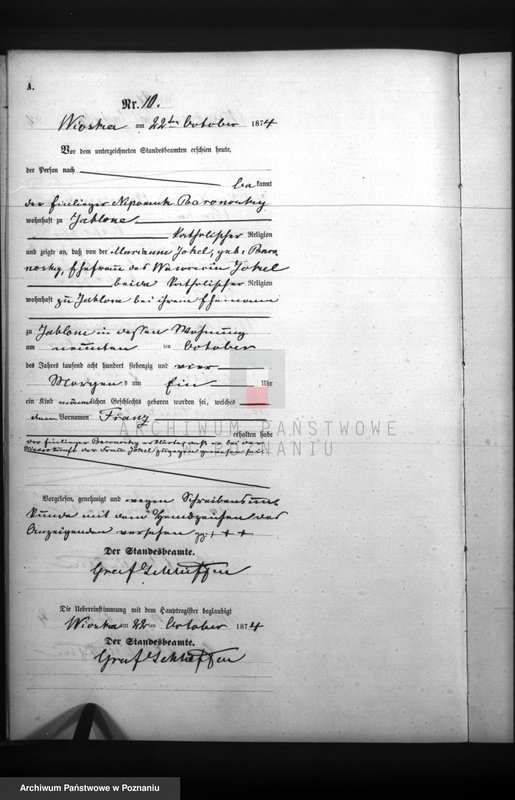 A.
Nr. 10.
Wioska am 22ten October 1874
Vor dem unterzeichneten Standesbeamten erschien heute,
der Person nach
bekannt
der Einlieger Nepomuk Baronosky
wohnhaft zu Jablone
katholischer Religion
und zeigte an, daß von der Marianne Jokel, geb. Baro
nosky, Ehefrau des Wawrczin Jokel
beide katholischer Religion
wohnhaft zu Jablone bei ihrem Ehemann
zu Jablone in dessen Wohnung
am neunten ten October
des Jahres tausend acht hundert siebenzig und vier
Morgens um Ein Uhr
ein Kind männlichen Geschlechts geboren worden sei, welches
den Vornamen Franz
erhalten habe
der Einlieger Baronosky erklärte, daß er bei der
Niederkunft der Frau Jokel zugegen gewesen sei.
Vorgelesen, genehmigt und wegen Schreibensun-
kunde mit dem Handzeichen des
Anzeigenden versehen + + +
Der Standesbeamte.
Graf Schlieffen
Die Uebereinstimmung mit dem Hauptregister beglaubigt
Wioska am 22ten October 1874
Der Standesbeamte.
Graf Schlieffen
ARCHIWUM PAŃSTWOWE
POZNANIU
Archiwum Państwowe w Poznaniu